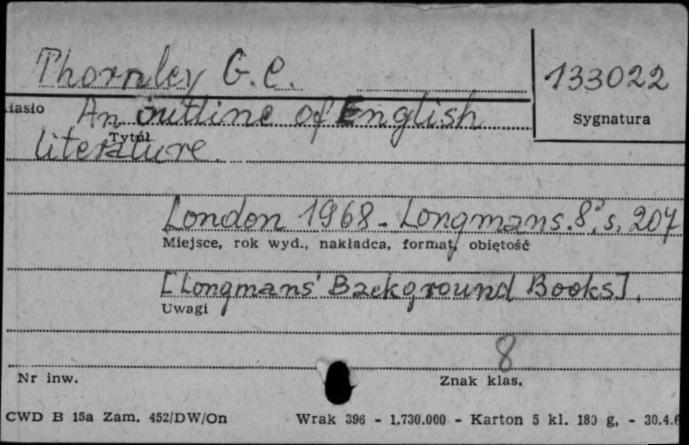 Thornley G.C.
133022
Hasło
Sygnatura
An outline of English
Tytuł
literature.
London 1968. Longmans. 8°, s. 207
Miejsce, rok wyd., nakładca, format, objętość
[Longmans' Background Books].
Uwagi
8
Nr inw.
Znak klas.
CWD B 15a Zam. 452/DW/On Wrak 396 - 1.730.000 - Karton 5 kl. 180 g. - 30.4.6